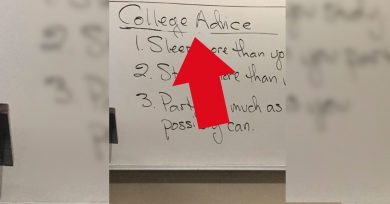 College Advice
1. Sleep more than yo
2. St more than
3. Part much as
possibly can.